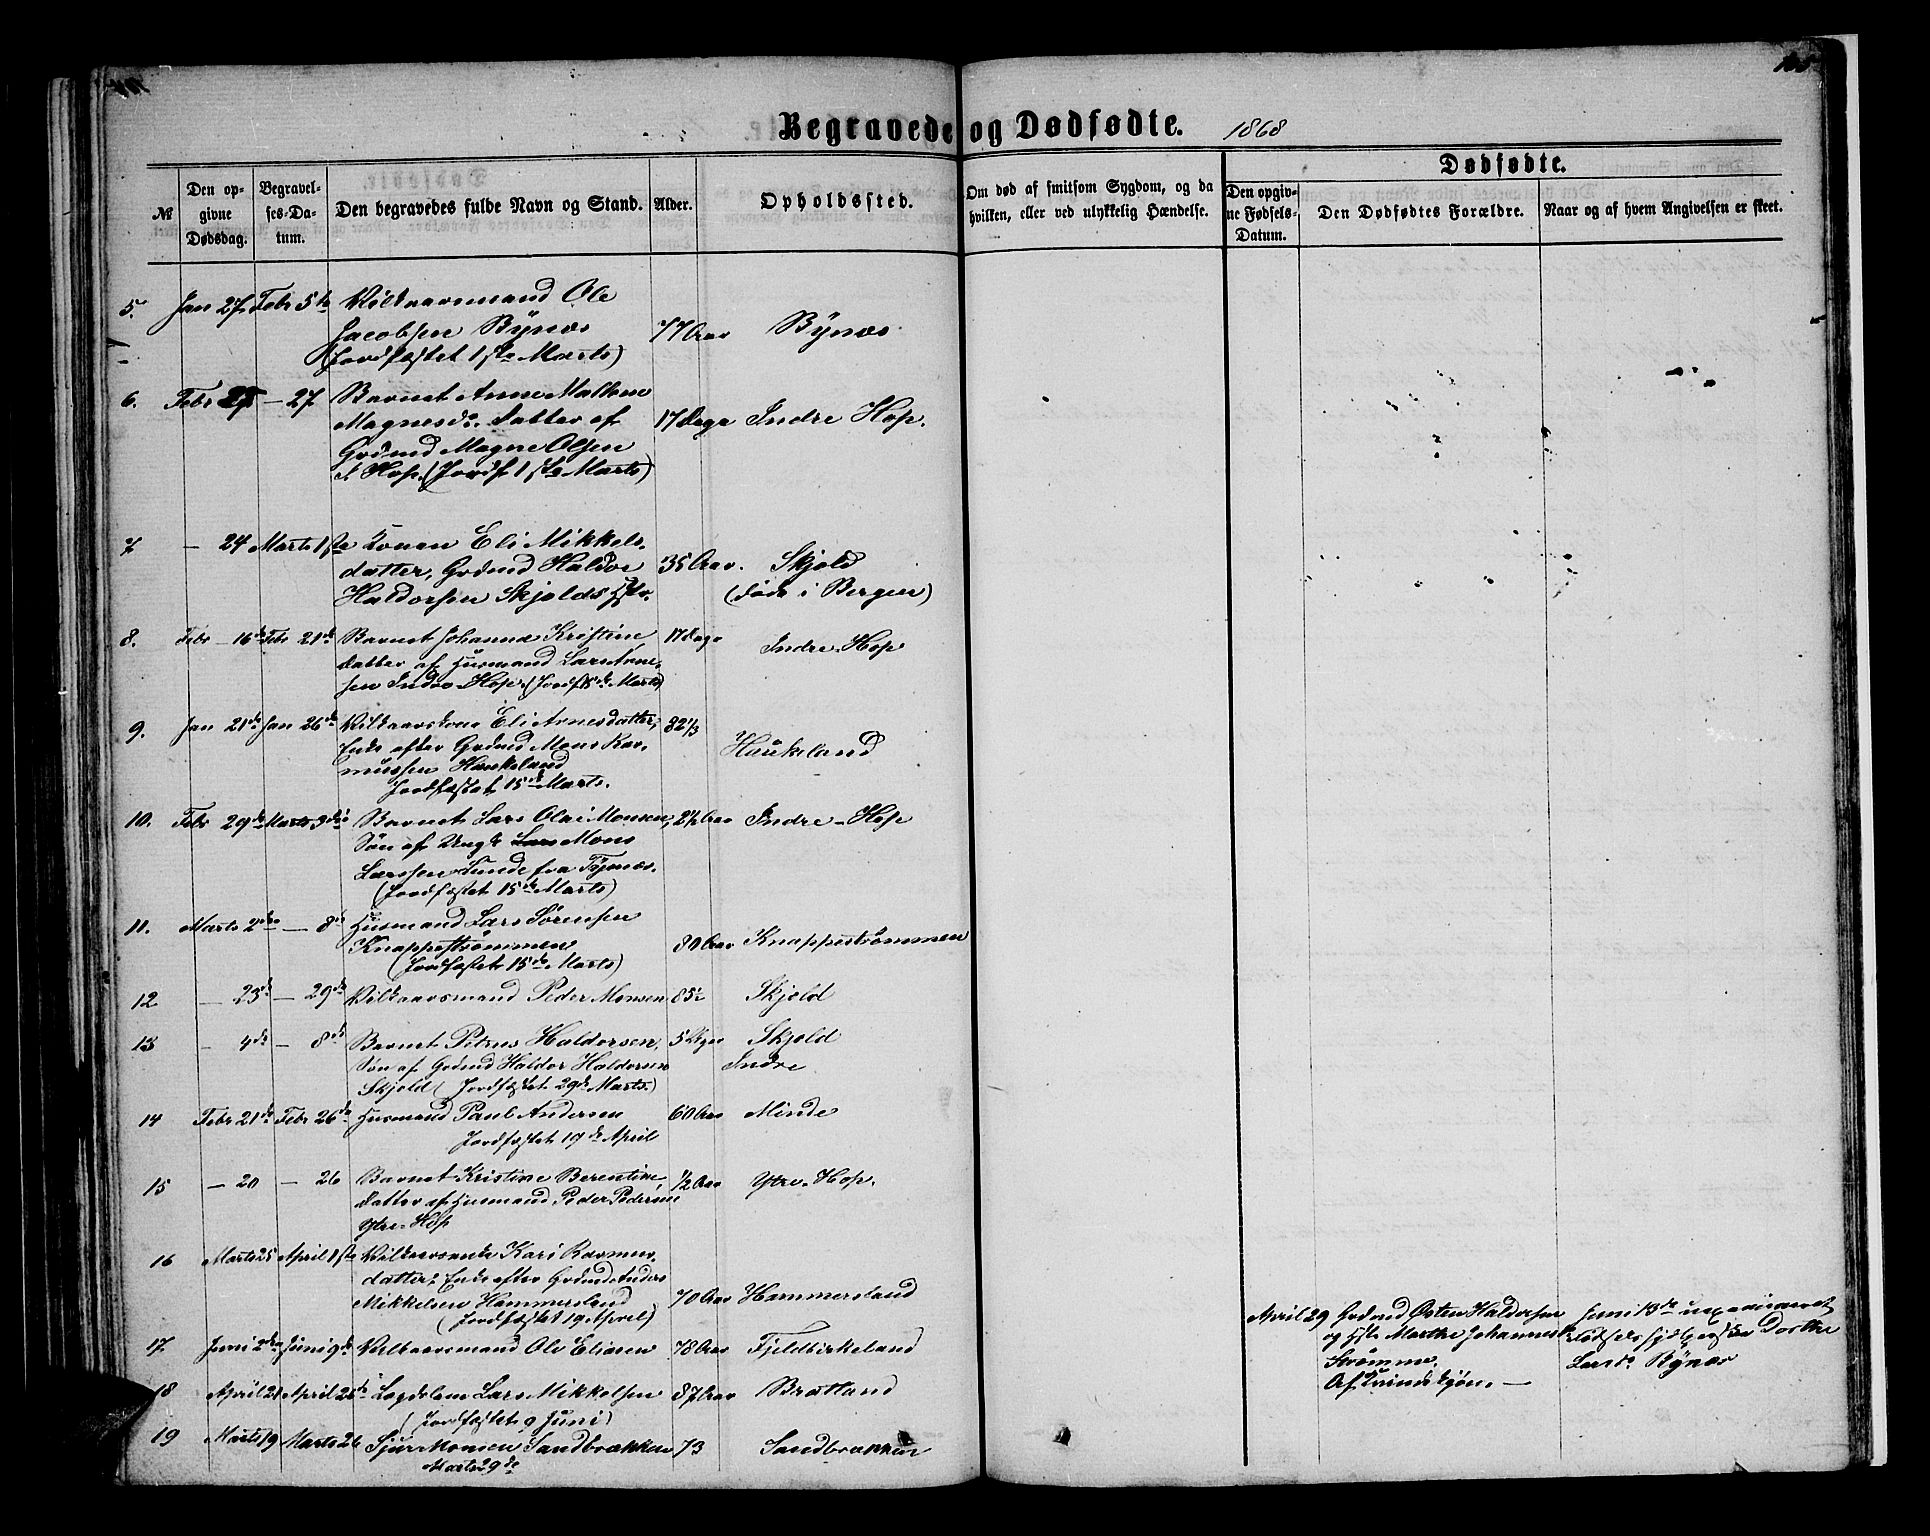 105
Begravede og Dødfødte. 1868
№
Den opgivne Dødsdag.
Begravelses-Datum.
Den begravedes fulde Navn og Stand.
Alder.
Opholdssted.
Om død af smitsom Sygdom, og da hvilken, eller ved ulykkelig Hændelse.
Dødfødte.
Den opgivne Fødsels-Datum.
Den Dødfødtes Forældre.
Naar og af hvem Angivelsen er skeet.
5. Jan 27 Febr 5te Vilkaarsmand Ole
Jacobsen Bynæs 77 Aar Bynæs
(Jordfæstet 1ste Marts)
6. Febr 25 — 27 Barnet Anne Malene
Magnesd. Datter af 17 Dage Indre Hop.
Grdmd Magne Olsen
I. Hop. (Jordf. 1ste Marts)
7 — 24 Marts 1ste Konen Eli Mikkels-
datter, Grdmd Haldor 35 Aar. Skjold
Haldorsen Skjolds Hstr. (død i Bergen)
8. Febr 16de Febr 21de Barnet Johanna Kristine 17 Dage Indre-Hop
Datter af Husmand Lars Arne-
sen Indre-Hop. (Jordf. 15de Marts)
9. Jan 21de Jan 26de Vilkaarskone Eli Arnesdatter, 82 1/3
Enke efter Grdmd Mons Ras- Haukeland
mussen Haukeland
Jordfæstet 15de Marts.
10. Febr 29de Marts 3die Barnet Lars Olai Monsen, 2½ Aar Indre-Hop
Søn af Ungk Lars Mons
Larssen Lunde fra Tysnæs.
(Jordfæstet 15de Marts)
11. Marts 2den — 8de Husmand Lars Sørensen
Knappestrømmen 80 Aar Knappestrømmen
(Jordfæstet 15de Marts)
12 — 23de — 29de Vilkaarsmand Peder Monsen 85½ Skjold
13 — 4de — 8de Barnet Petrus Haldorsen, 5 Uger Skjold
Søn af Grdmd Haldor Haldorsen Indre
Skjold (Jordfæstet 29de Marts.)
14 Febr 21de Febr 26de Husmand Paul Andersen 60 Aar Minde
Jordfæstet 19de April
15 — 20 — 26 Barnet Kristine Berentine ½ Aar Ytre-Hop.
Datter af Husmand Peder Pedersen
Ytre-Hop
16 Marts 25 April 1ste Vilkaarsenke Kari Rasmus-
datter, Enke efter Grdmd Anders
Mikkelsen Hammersland 70 Aar Hammersland
(Jordfæstet 19 April)
17 Juni 2den Juni 9de Vilkaarsmand Ole Eliasen 78 Aar Fjeldbirkeland
18 April 21 April 26de Lægdslem Lars Mikkelsen 87 Aar Bratland
(Jordfæstet 9 Juni)
19 Marts 19 Marts 26 Sjur Monsen Sandbrækken 73 Sandbrækken
Marts 29de
April 29 Grdmd Østen Haldorsen Juni 13de uexamineret
og Hstr Marthe Johannesd. Fødselshjælperske Dorthe
Strømme. Larsd. Bynæs
Af Kvindekjøn. —